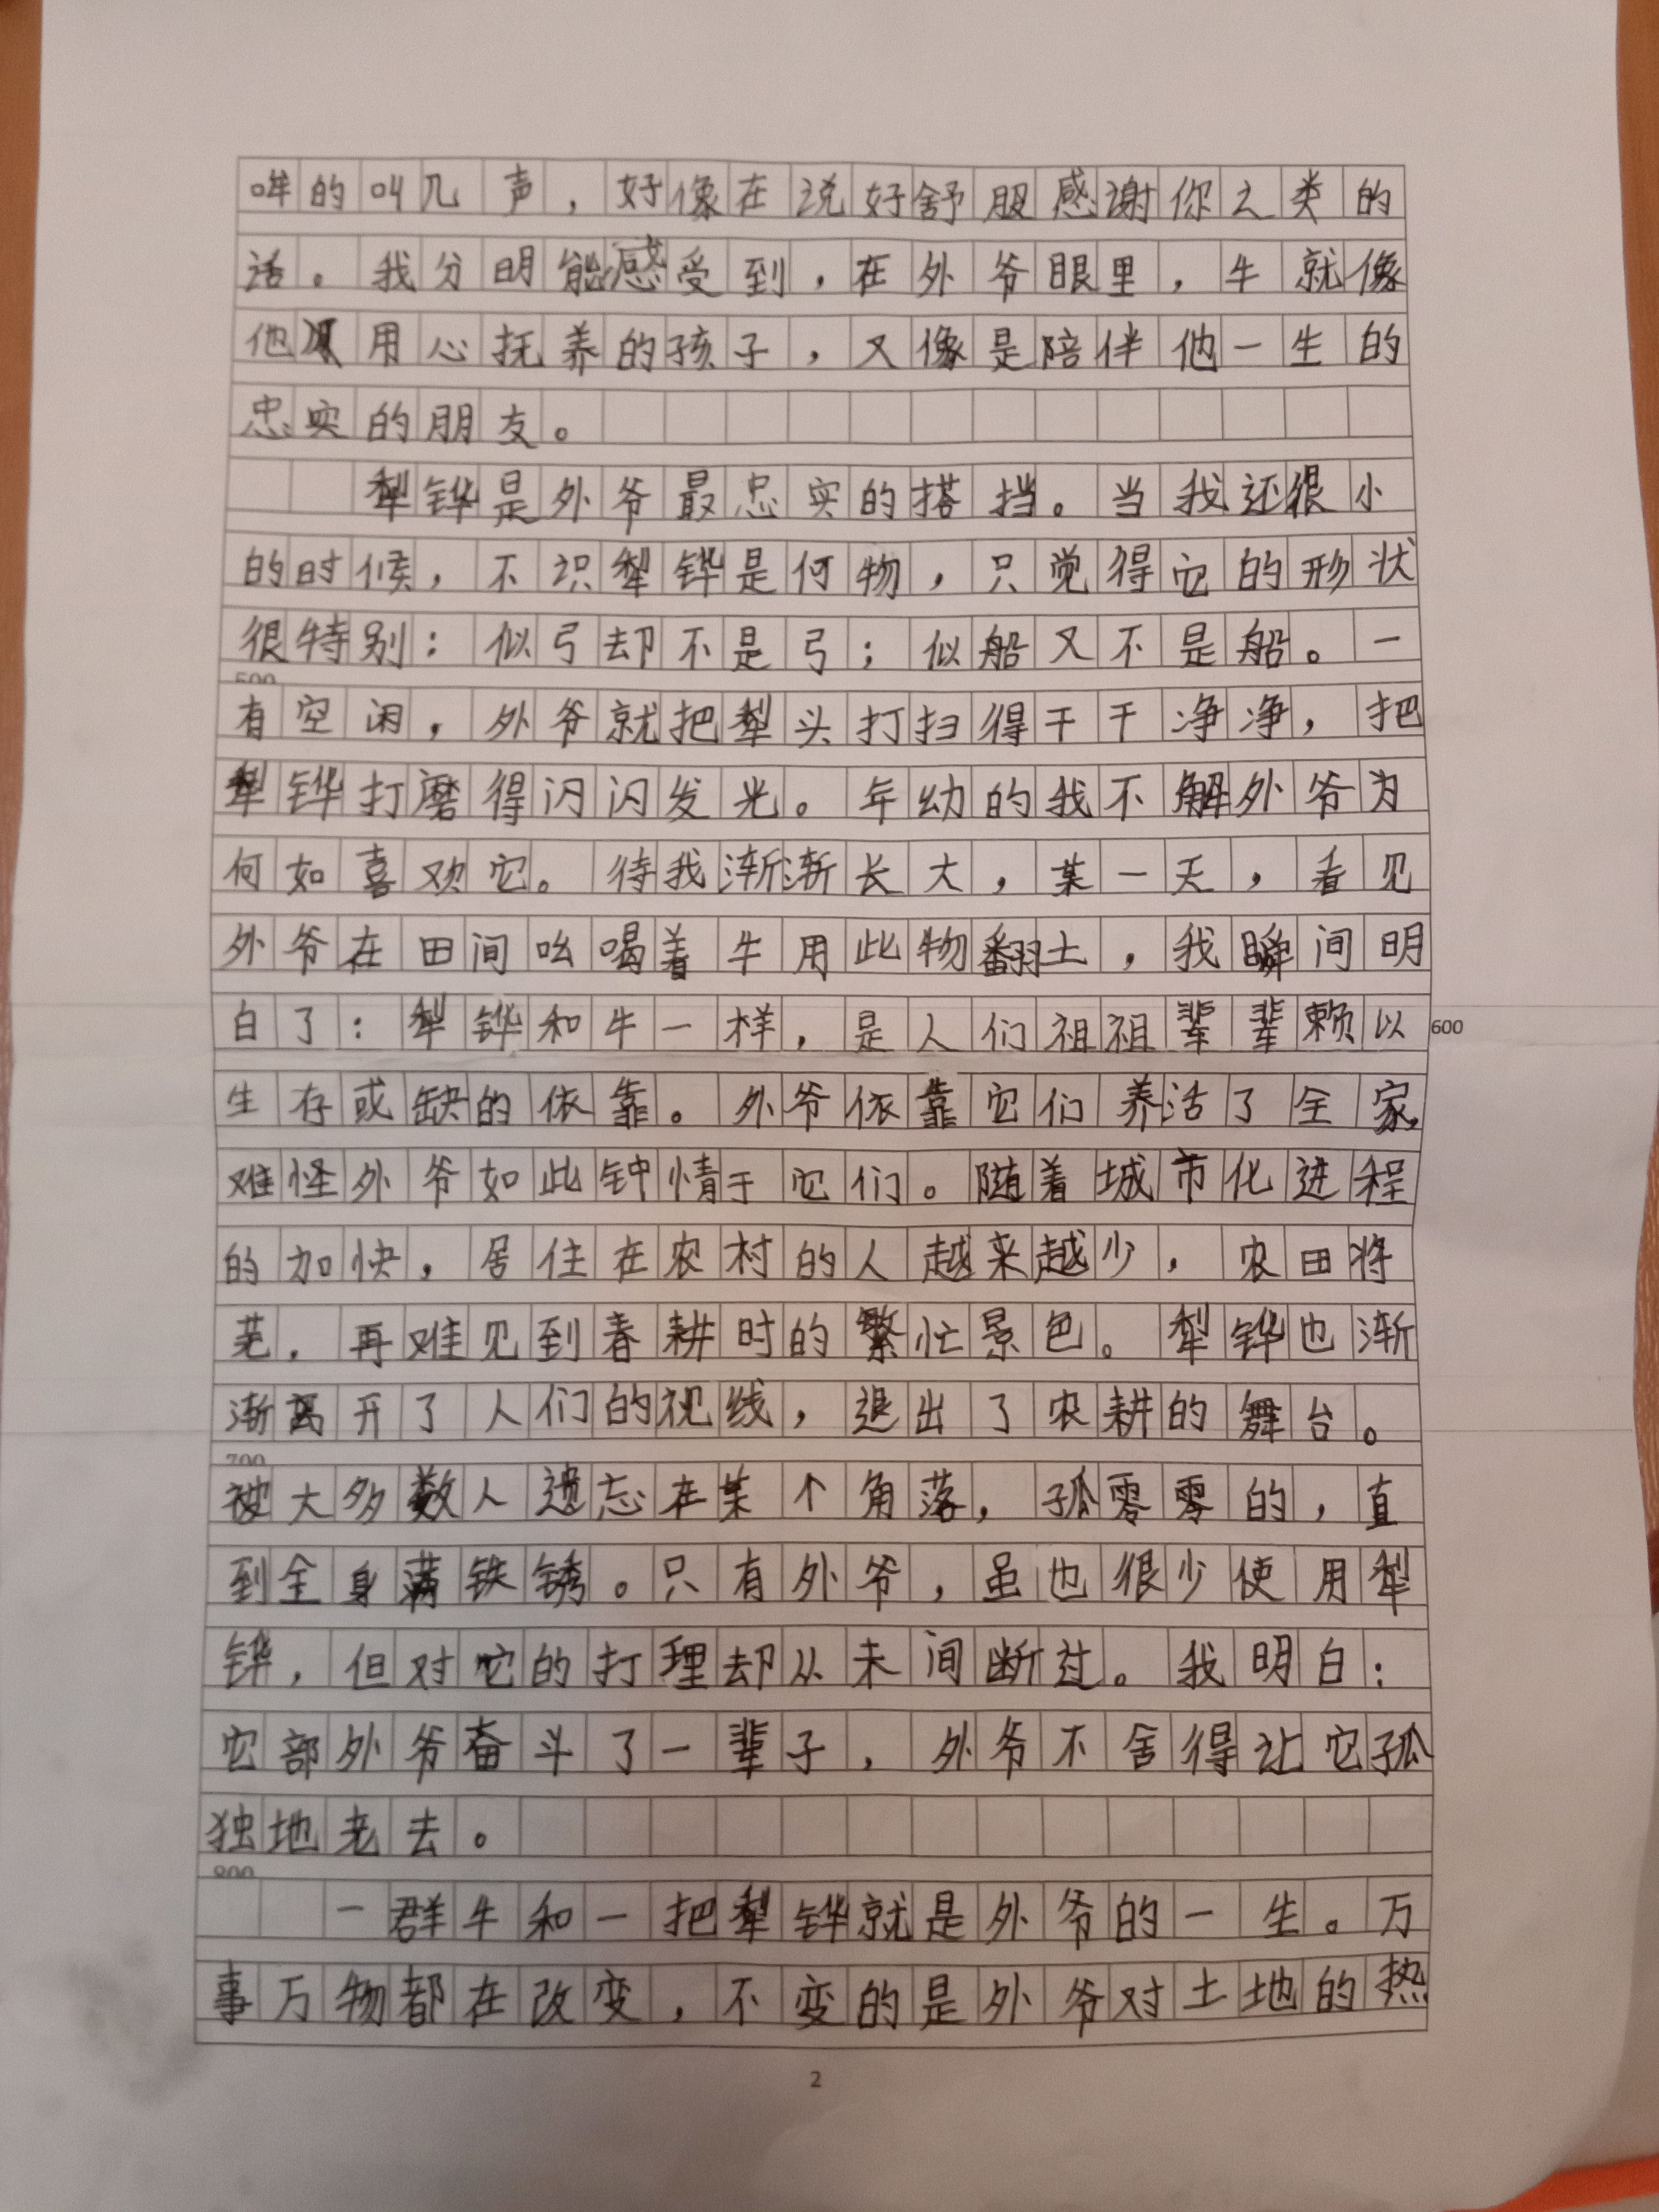 哞的叫几声，好像在说好舒服感谢你之类的
话。我分明能感受到，在外爷眼里，牛就像
他用心抚养的孩子，又像是陪伴他一生的
忠实的朋友。
犁铧是外爷最忠实的搭挡。当我还很小
的时候，不识犁铧是何物，只觉得它的形状
很特别：似弓却不是弓；似船又不是船。一
500
有空闲，外爷就把犁头打扫得干干净净，把
犁铧打磨得闪闪发光。年幼的我不解外爷为
何如喜欢它。待我渐渐长大，某一天，看见
外爷在田间吆喝着牛用此物翻土，我瞬间明
白了：犁铧和牛一样，是人们祖祖辈辈赖以
600
生存或缺的依靠。外爷依靠它们养活了全家，
难怪外爷如此钟情于它们。随着城市化进程
的加快，居住在农村的人越来越少，农田将
芜，再难见到春耕时的繁忙景色。犁铧也渐
渐离开了人们的视线，退出了农耕的舞台。
700
被大多数人遗忘在某个角落，孤零零的，直
到全身满铁锈。只有外爷，虽也很少使用犁
铧，但对它的打理却从未间断过。我明白：
它部外爷奋斗了一辈子，外爷不舍得让它孤
独地老去。
800
一群牛和一把犁铧就是外爷的一生。万
事万物都在改变，不变的是外爷对土地的热
2